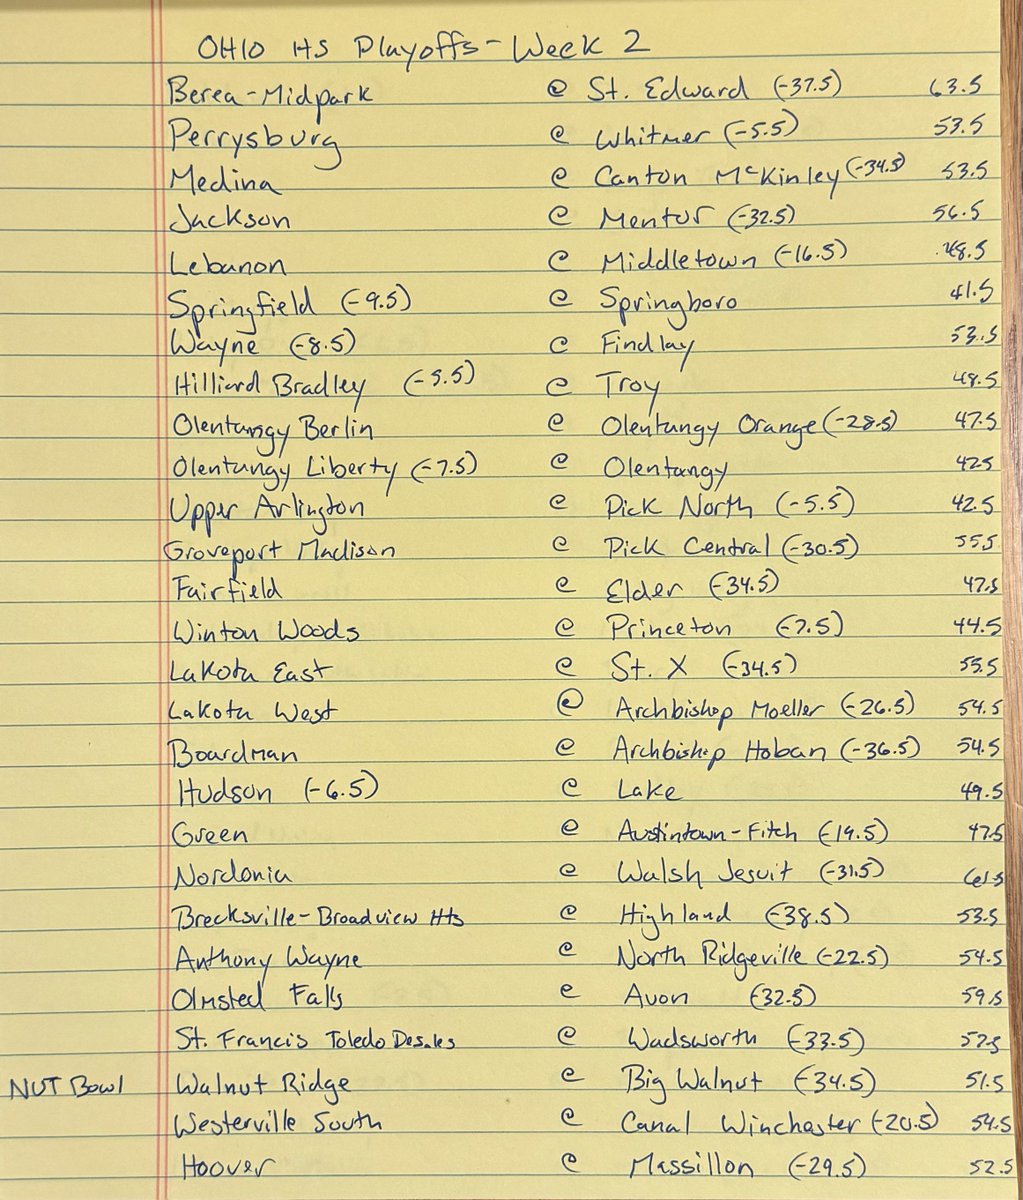 OHIO HS Playoffs - Week 2
Berea-Midpark @ St. Edward (-37.5) 63.5
Perrysburg @ Whitmer (-5.5) 53.5
Medina @ Canton McKinley (-34.5) 53.5
Jackson @ Mentor (-32.5) 56.5
Lebanon @ Middletown (-16.5) 48.5
Springfield (-9.5) @ Springboro 41.5
Wayne (-8.5) @ Findlay 53.5
Hilliard Bradley (-5.5) @ Troy 48.5
Olentangy Berlin @ Olentangy Orange (-28.5) 47.5
Olentangy Liberty (-7.5) @ Olentangy 42.5
Upper Arlington @ Pick North (-5.5) 42.5
Groveport Madison @ Pick Central (-30.5) 55.5
Fairfield @ Elder (-34.5) 47.5
Winton Woods @ Princeton (-7.5) 44.5
Lakota East @ St. X (-34.5) 55.5
Lakota West @ Archbishop Moeller (-26.5) 54.5
Boardman @ Archbishop Hoban (-36.5) 54.5
Hudson (-6.5) @ Lake 49.5
Green @ Austintown-Fitch (-19.5) 47.5
Nordonia @ Walsh Jesuit (-31.5) 61.5
Brecksville-Broadview Hts @ Highland (-38.5) 53.5
Anthony Wayne @ North Ridgeville (-22.5) 54.5
Olmsted Falls @ Avon (-32.5) 59.5
St. Francis Toledo Desales @ Wadsworth (-33.5) 52.5
NUT Bowl Walnut Ridge @ Big Walnut (-34.5) 51.5
Westerville South @ Canal Winchester (-20.5) 54.5
Hoover @ Massillon (-29.5) 52.5